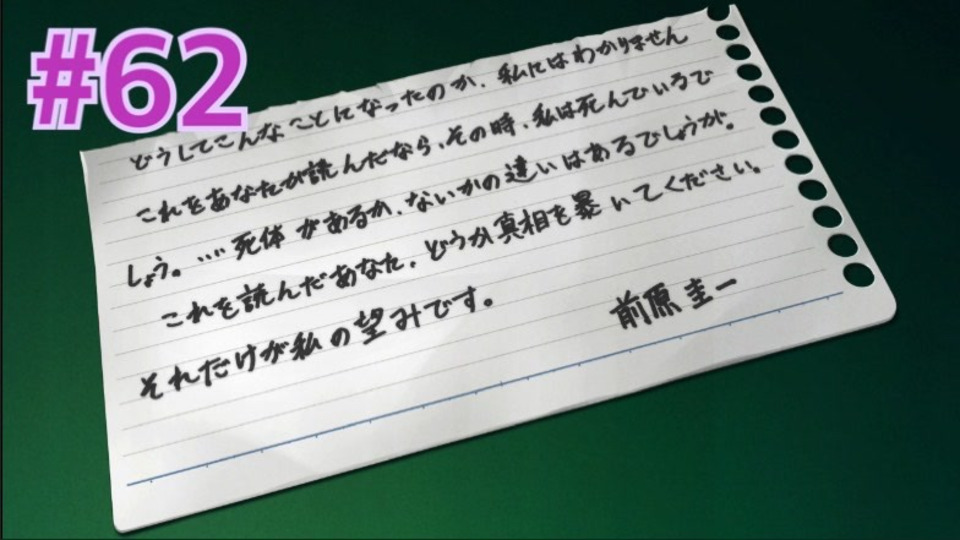 #62
どうしてこんなことになったのか、私にはわかりません
これをあなたが読んだなら、その時、私は死んでいるで
しょう。…死体があるか、ないかの違いはあるでしょうが。
これを読んだあなた。どうか真相を暴いてください。
それだけが私の望みです。
前原圭一